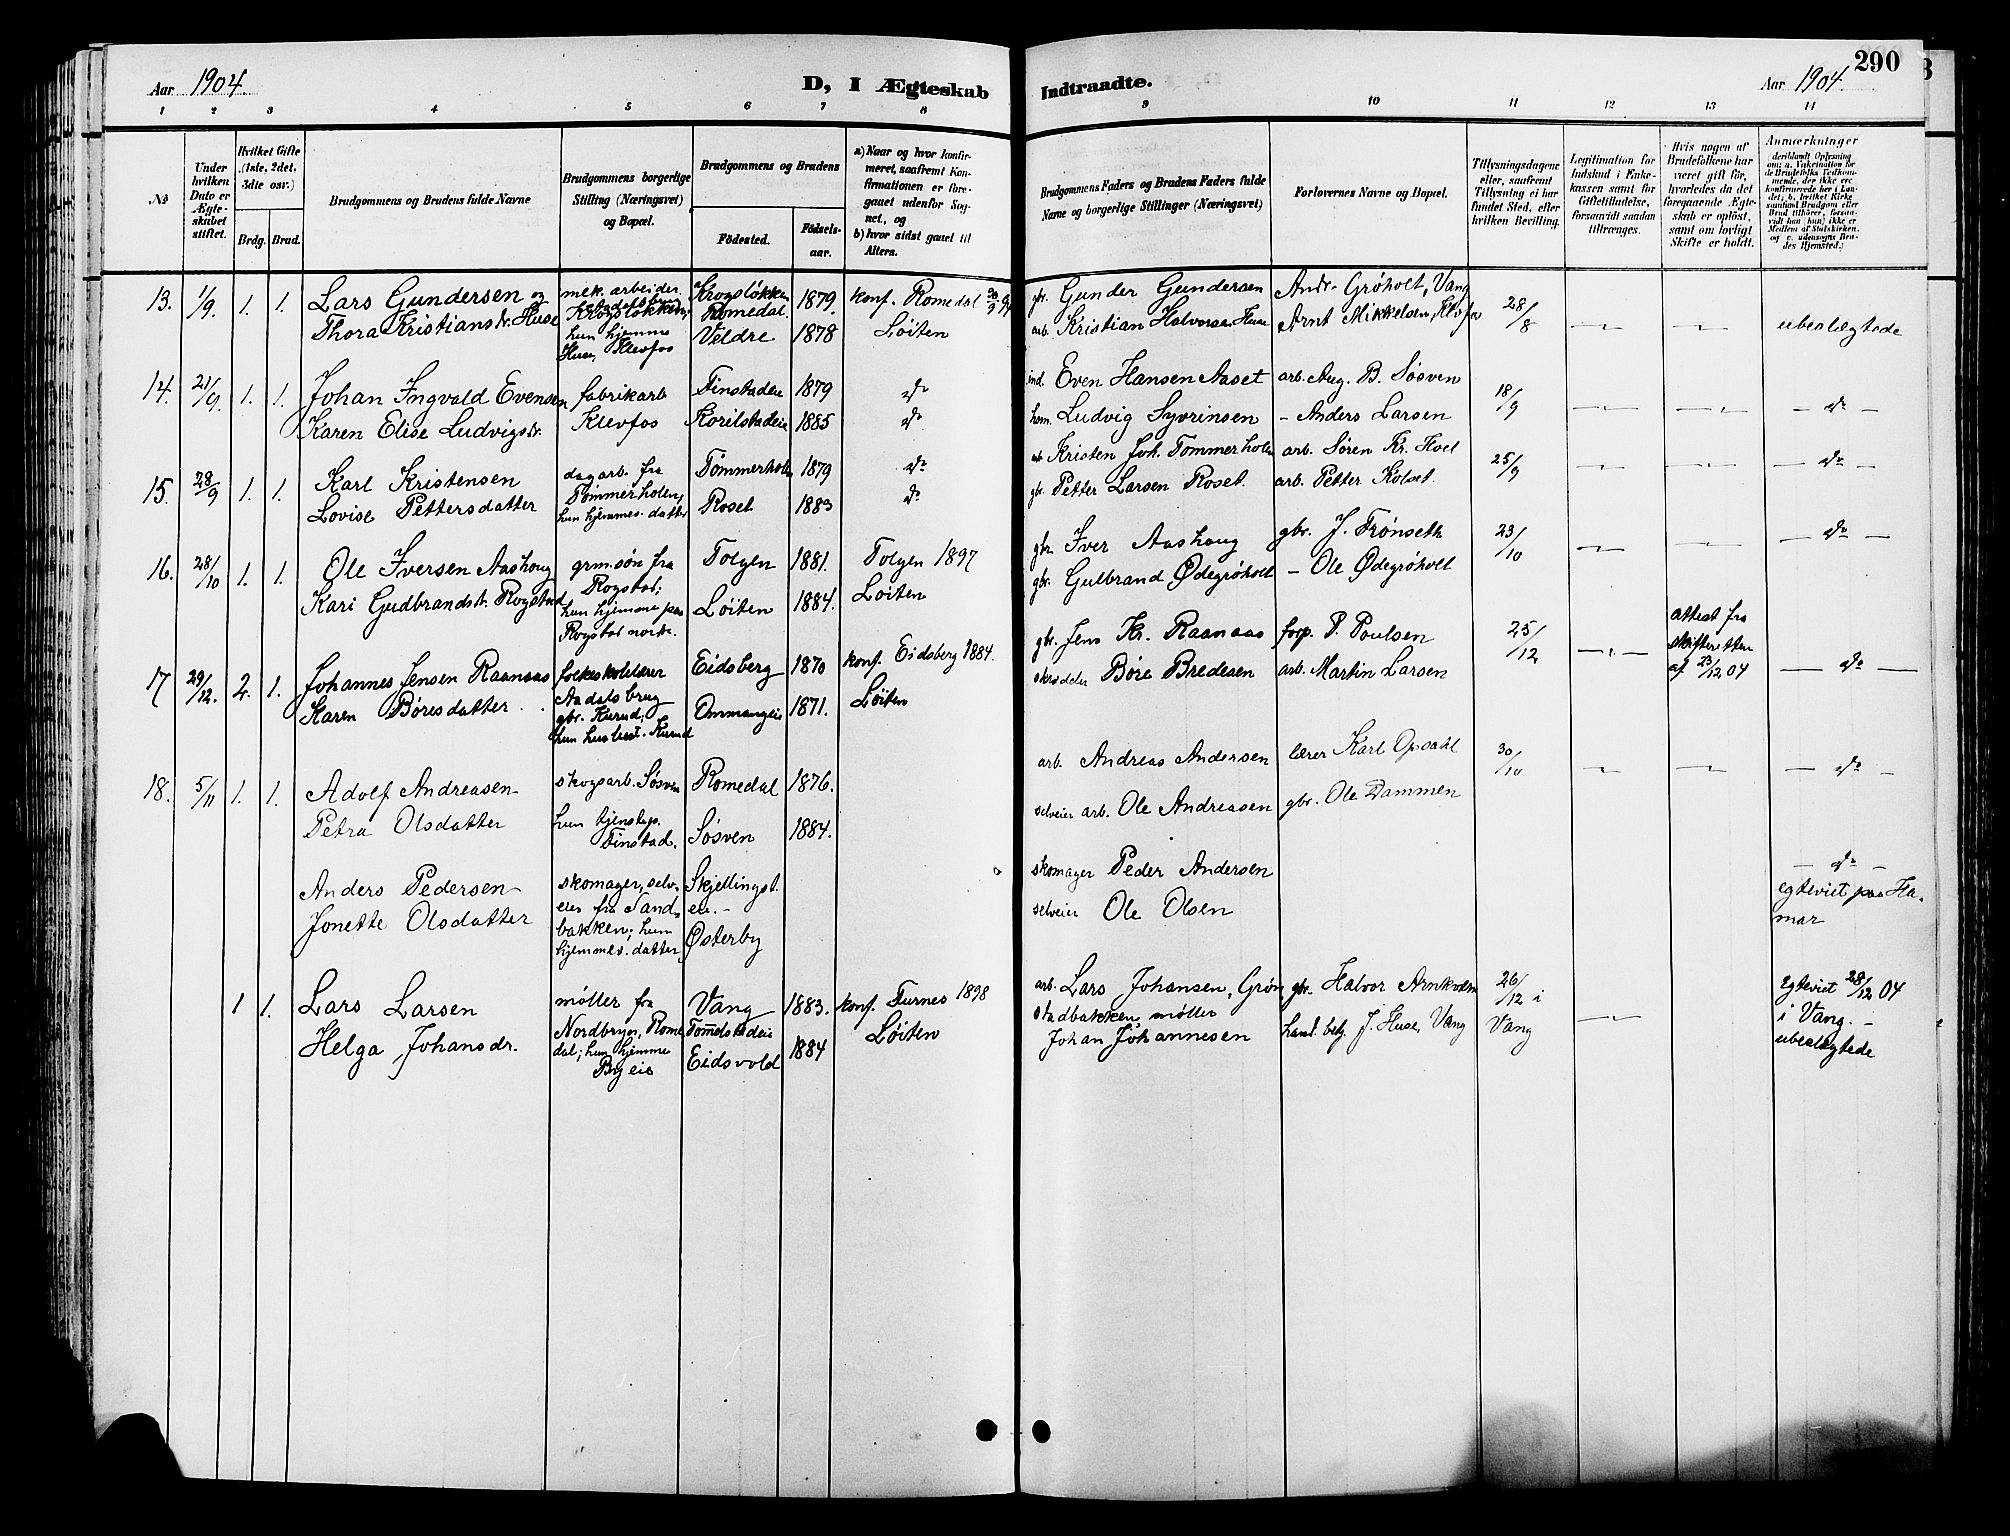 Aar 1904.
D, I Ægteskab
1 2 3 4 5 6 7 8
№
Under hvilken Dato er Ægteskabet stiftet.
Hvilket Gifte (1ste, 2det, 3die osv.)
Brdg. Brud.
Brudgommens og Brudens fulde Navne
Brudgommens borgerlige Stilling (Næringsvei) og Bopæl.
Brudgommens og Brudens
Fødested.
Fødselsaar.
a) Naar og hvor konfirmeret, saafremt Konfirmationen er foregaaet udenfor Sognet, og
b) hvor sidst gaaet til Alters.
13. 1/9. 1. 1. Lars Gundersen og
mek. arbeider
Krogsløkken Romedal. 1879. konf. Romedal
Thora Kristiansdr. Huse
Krogsløkken;
hun hjemme
Huse, Klevfos
Veldre 1878 Løiten
14. 21/9. 1. 1. Johan Ingvald Evensen
fabrikarb Finstadeie 1879 do
Karen Elise Ludvigsdr.
Klevfos Korilstadeie 1885 do
15. 28/9 1. 1. Karl Kristensen
dagarb. fra
Tommerholen,
hun hjemmev. datter
Tømmerholen 1879 do
Lovise Pettersdatter
Roset 1883 do
16. 28/10 1. 1. Ole Iversen Aashoug
grm.søn fra
Rogstad;
Tolgen 1881. Tolgen 1897
Kari Gudbrandsdr. Rogstad
hun hjemme paa
Rogstad nordre.
Løiten 1884. Løiten
17 29/12. 2. 1. Johannes Jensen Raanaas
folkeskolelærer
Aadalsbrug
gbr. Kurud;
hun husbest. Kurud
Eidsberg 1870 konf. Eidsberg 1884.
Karen Børesdatter
Ommangeie 1871. Løiten
18. 5/11 1. 1. Adolf Andreasen
skogsarb. Søsven Romedal 1876.
Petra Olsdatter
hun tjenstep.
Finstad. Søsven 1884.
Anders Pedersen
skomager, selveier fra Sandbakken; hun
hjemmev. datter
Skjellingst. eie.
Jonette Olsdatter
Østerby
1 1. Lars Larsen
møller fra
Nordbryn, Romedal; hun hjemme
Bryeie
Vang
Tomelstadeie 1883. konf. Furnes 1898
Helga Johansdr.
Eidsvold 1884 Løiten
290
Indtraadte.
Aar 1904.
9 10 11 12 13 14
Brudgommens Faders og Brudens Faders fulde Navne og borgerlige Stillinger (Næringsvei)
Forlovernes Navne og Bopæl.
Tillysningsdagene eller, saafremt Tillysning ei har fundet Sted, efter hvilken Bevilling.
Legitimation for Indskud i Enkekassen samt for Giftetilladelse, forsaavidt saadan tiltrænges.
Hvis nogen af Brudefolkene har været gift før, hvorledes da det foregaaende Ægteskab er opløst, samt om lovligt Skifte er holdt.
Anmerkninger
(deriblandt Oplysning om: a. Vakcination for de Brudefolks Vedkommende, der ikke ere konfirmerede her i Landet; b. hvilket Kirkesamfund Brudgom eller Brud tilhører, forsaavidt han (hun) ikke er Medlem af Statskirken, og c. udensogns Brudes Hjemsted.)
gbr. Gunder Gundersen
Andr. Grøholt, Vang
28/8
ubeslægtede
arb. Kristian Halvorsen Huse
Arnt Mikkelsen, Klvfos
ind. Even Hansen Aaset
arb. Aug. B. Søsven
18/9
do
hom. Ludvig Syvrinsen
- Anders Larsen
arb Kristen Joh. Tommerholen
arb. Søren Kr. Hoel
25/9
do
gbr. Petter Larsen Roset.
arb. Petter Kolset.
gbr. Iver Aashoug
gbr. J. Trønseth
23/10
do
gbr. Gulbrand Ødegrøholt
- Ole Ødegrøholt
gbr. Jens Kr. Raanaas
forp. P. Poulsen
25/12
attest fra
skifteretten
af 23/12 04
do
skrædder Børe Bredesen
arb. Martin Larsen
arb. Andreas Andersen
lærer Karl Opsahl
30/10
do
selveier arb. Ole Andreasen
gbr. Ole Dammen
skomager Peder Andersen
do
egteviet paa Hamar
selveier Ole Olsen
arb. Lars Johansen, Grønstadbakken, møller
gbr. Halvor Arnkværn
26/12 i
Vang
egteviet 28/12 04
i Vang.
ubeslægtede
Johan Johannesen
J. Huse, Vang